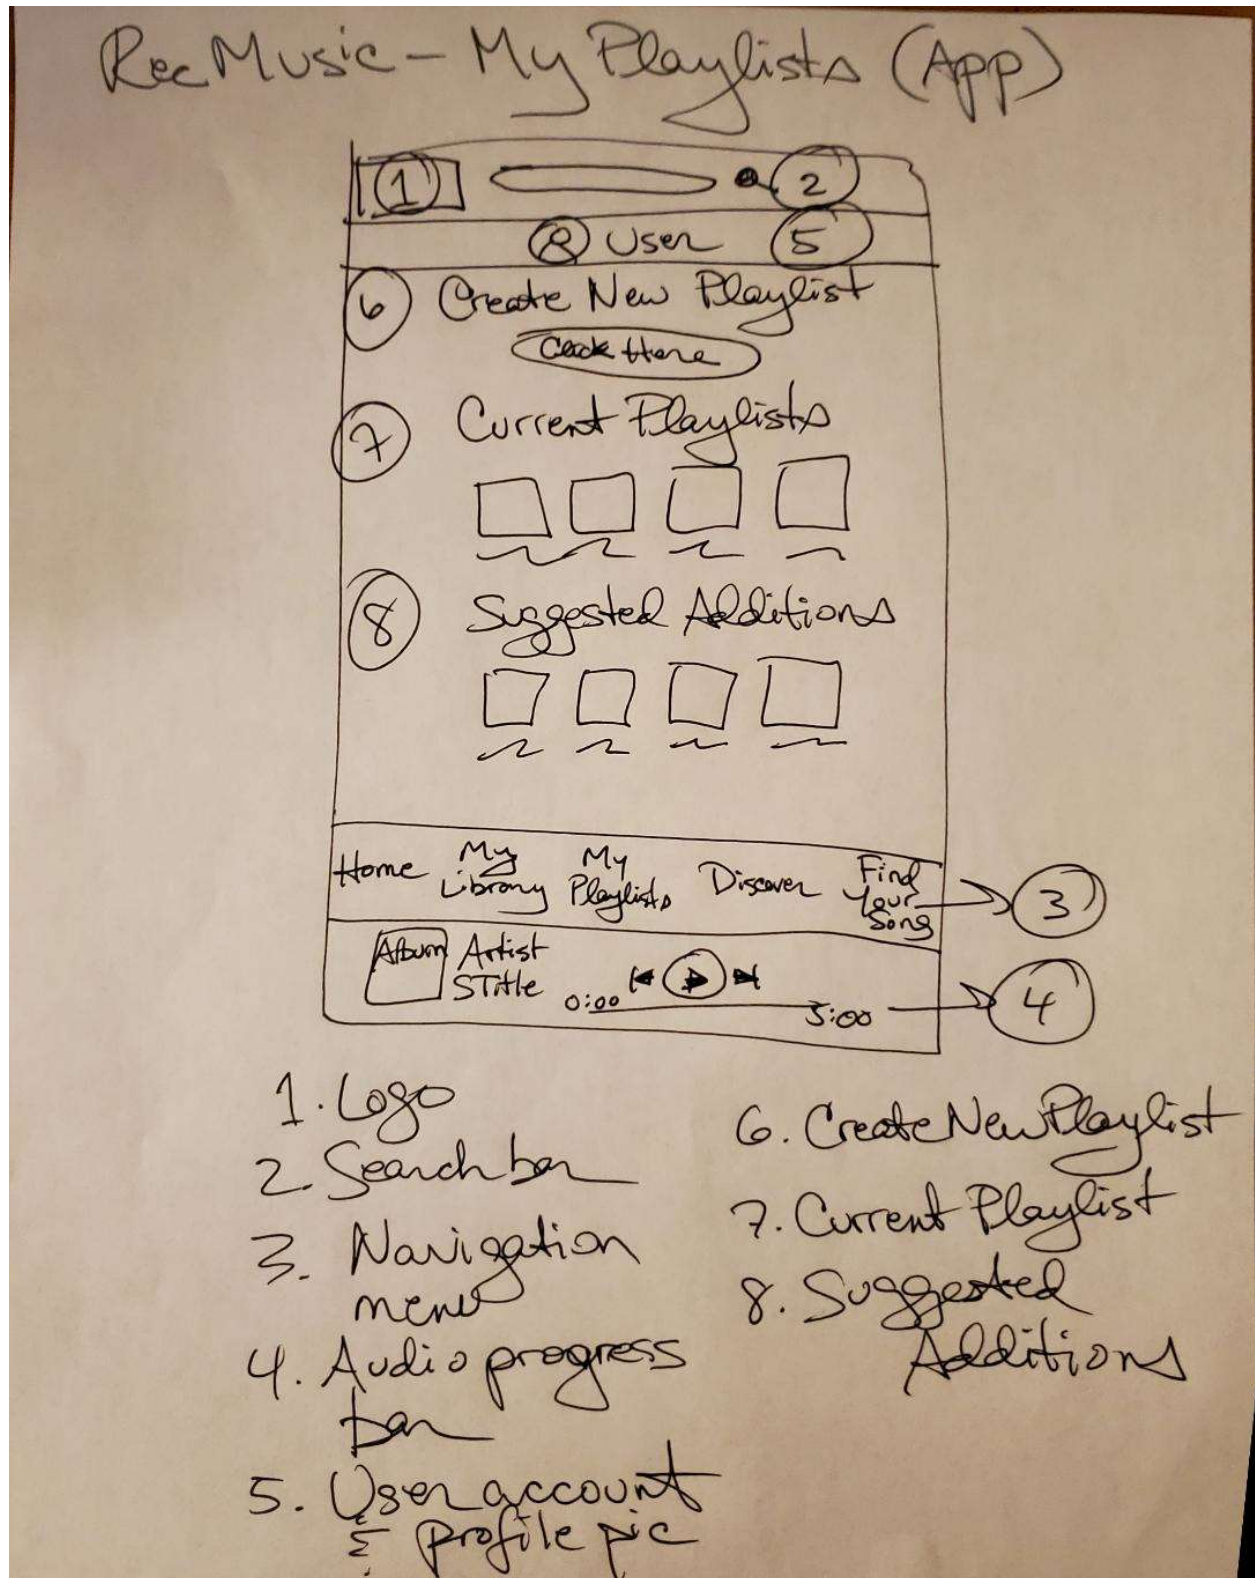 Rec Music - My Playlists (App)
1
2
User 5
6 Create New Playlist
Click Here
7 Current Playlists
8 Suggested Additions
Home My Library My Playlists Discover Find Your Song
3
Album Artist
STitle
0:00 3:00
4
1. Logo
2. Search bar
3. Navigation
menu
4. Audio progress
bar
5. User account
& profile pic
6. Create New Playlist
7. Current Playlist
8. Suggested
Additions